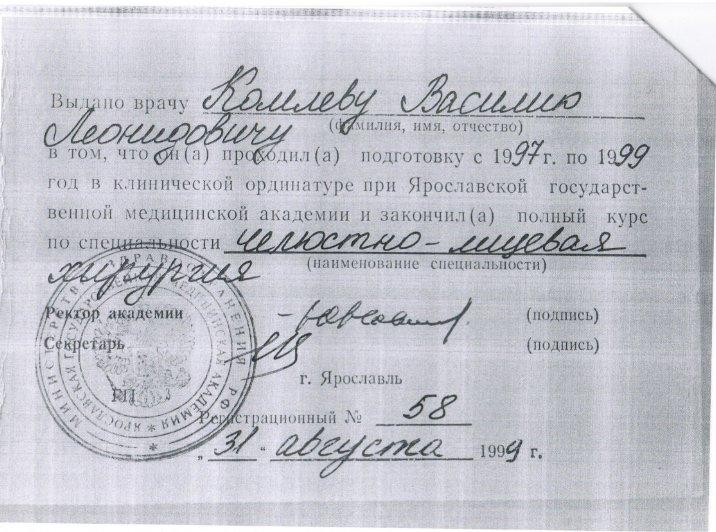 Выдано врачу Комлеву Василию
Леонидовичу
(фамилия, имя, отчество)
в том, что он(а) проходил(а) подготовку с 1997 г. по 1999
год в клинической ординатуре при Ярославской государст-
венной медицинской академии и закончил(а) полный курс
по специальности челюстно-лицевая
хирургия
(наименование специальности)
Ректор академии (подпись)
Секретарь (подпись)
г. Ярославль
Регистрационный № 58
„ 31 “ августа 1999 г.
МИНИСТЕРСТВО ЗДРАВООХРАНЕНИЯ РФ
ЯРОСЛАВСКАЯ ГОСУДАРСТВЕННАЯ МЕДИЦИНСКАЯ АКАДЕМИЯ